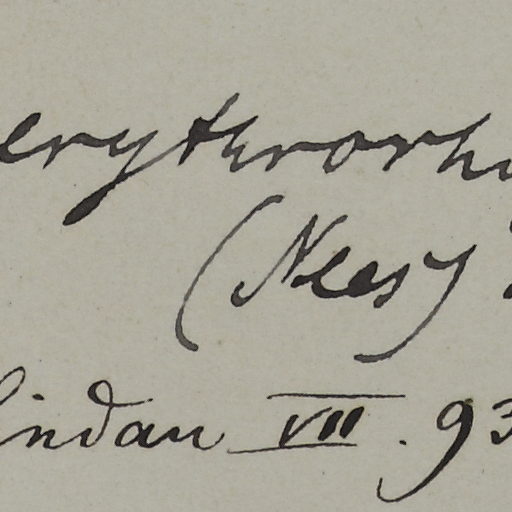 erythrorh
(Nees)
Lindau VII. 93